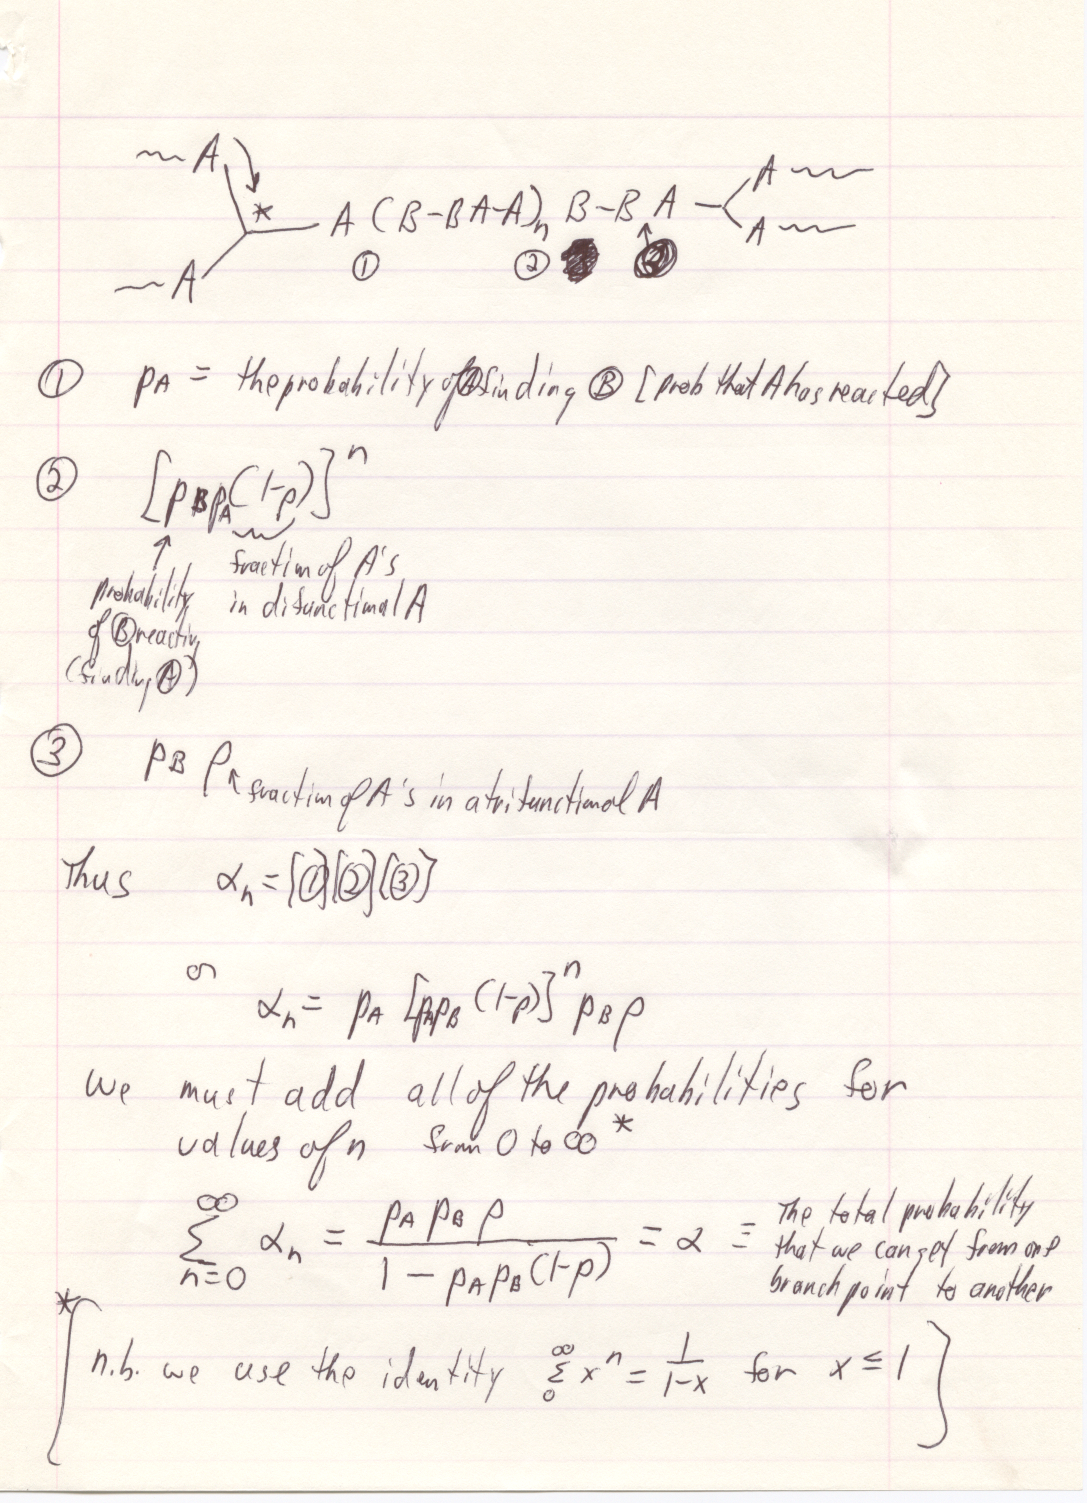 ~A
* A (B-BA-A)n B-B A A ~
A ~
~A
① ②
① pA = the probability of Ⓐ finding Ⓑ [prob that A has reacted]
② [pB pA (1-ρ)]^n
fraction of A's
in difunctional A
probability
of Ⓑ reacting
(finding Ⓐ)
③ pB ρ
fraction of A's in a trifunctional A
Thus αn = [①][②][③]
or
αn = pA [pA pB (1-ρ)]^n pB ρ
we must add all of the probabilities for
values of n from 0 to ∞ *
∑_{n=0}^{∞} αn = pA pB ρ / (1 - pA pB (1-ρ)) = α ≡ The total probability
that we can get from one
branch point to another
*
[n.b. we use the identity ∑_0^∞ x^n = 1/(1-x) for x ≤ 1]